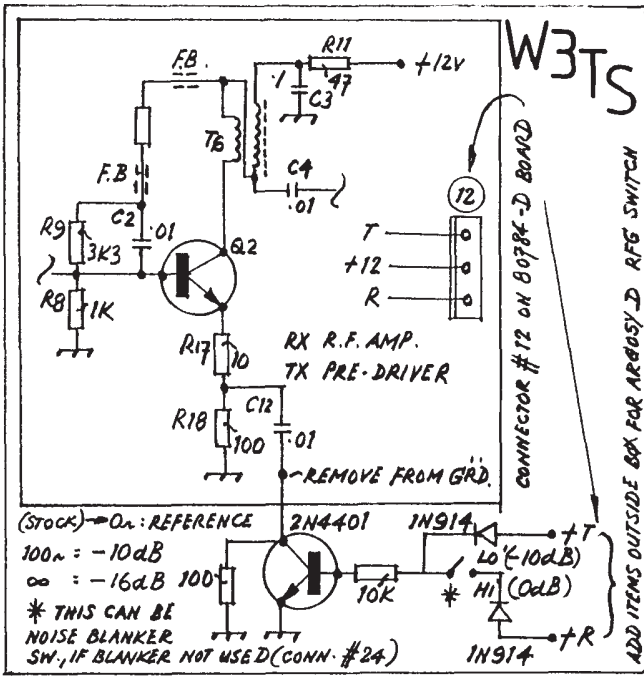 W3TS
F.B.
R11
47
+12V
.1
C3
T6
C4
.01
F.B
C2
.01
R9
3K3
Q2
R8
1K
12
T
+12
R
R17
10
RX R.F. AMP.
TX PRE-DRIVER
C12
R18
100
.01
REMOVE FROM GRD.
CONNECTOR #12 ON 80784-D BOARD
ADD ITEMS OUTSIDE BOX FOR ARGOSY-D RFG SWITCH
(STOCK)→0Ω: REFERENCE
100Ω: -10dB
∞ = -16dB
* THIS CAN BE
NOISE BLANKER
SW., IF BLANKER NOT USED (CONN. #24)
2N4401
100
10K
1N914
+T
LO (-10dB)
HI (0dB)
*
1N914
+R